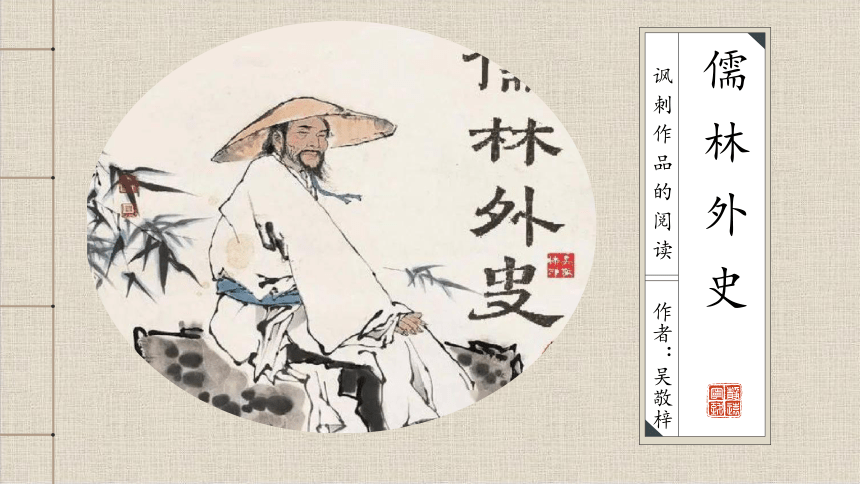 儒林外史
儒林外史
讽刺作品的阅读
作者：吴敬梓